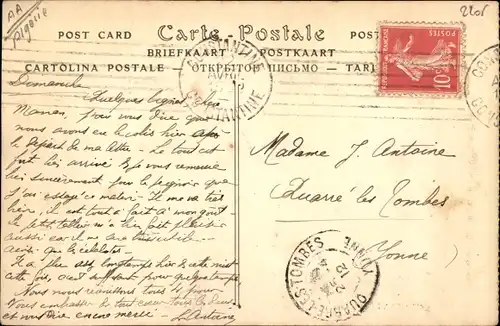 AA
Algérie
2205
POST CARD
Carte Postale
POST
BRIEFKAART
POSTKAART
CARTOLINA POSTALE
ОТКРЫТОЕ ПИСЬМО
TARJ
CONSTANTINE
CONSTANTINE
POSTES
10
Dimanche
Quelques lignes chère
Maman, pour vous dire que nous
avons eu le colis hier après
le départ de ma lettre. Le tout est
fort bien arrivé & je vous remercie
bien sincèrement pour le peignoir que
j'ai essayé ce matin. Il me va très
bien, il est tout à fait à mon goût
le petit tablier m'a fait plaisir
aussi car il me sera
ainsi que les
Il a plu assez longtemps hier & cette nuit
cette fois, c'est suffisant pour quelque temps
Nous vous réunissons tous 4 pour
Vous embrasser de tout cœur tous les deux
et vous dire encore merci - L. Antoine
Madame J. Antoine
Quarré les Tombes
Yonne
QUARRÉ-LES-TOMBES
YONNE